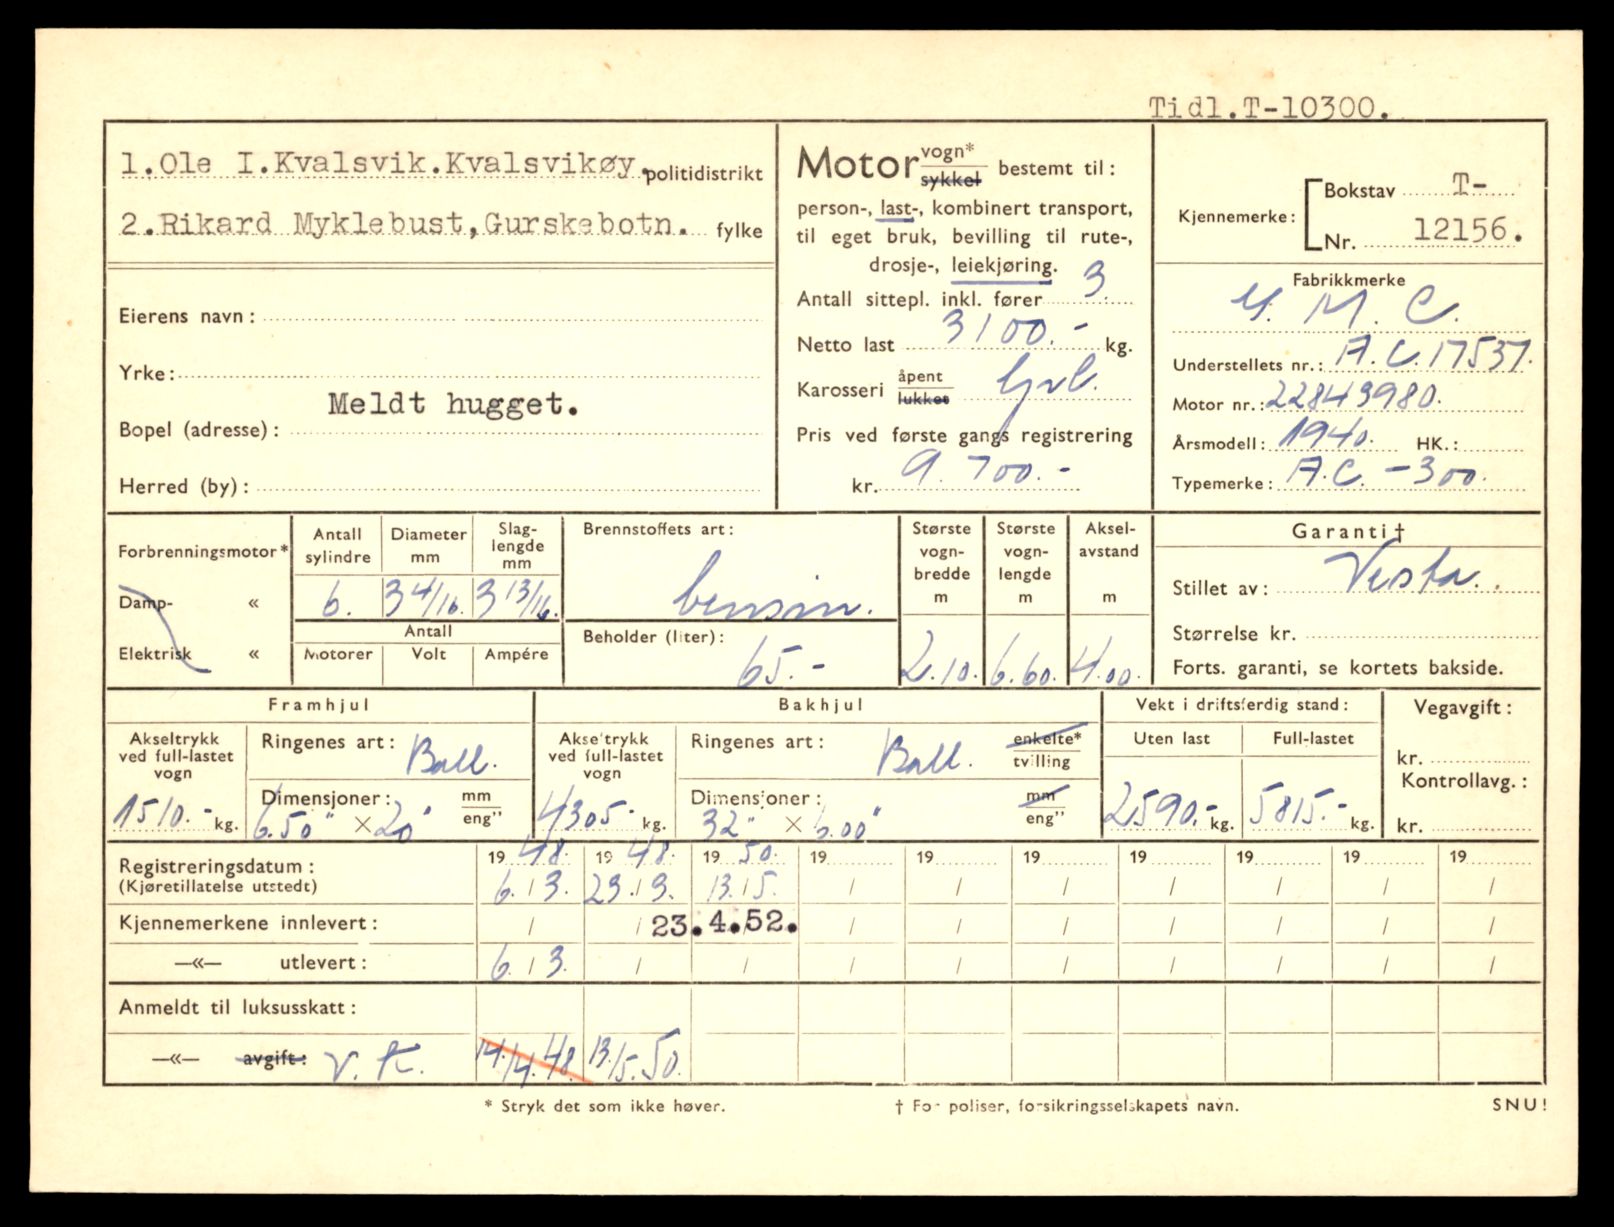 Tidl.T-10300.
1.Ole I.Kvalsvik.Kvalsvikøy. politidistrikt
2.Rikard Myklebust,Gurskebotn. fylke
Eierens navn :
Yrke :
Meldt hugget.
Bopel (adresse) :
Herred (by) :
Motor vogn* sykkel bestemt til :
person-, last-, kombinert transport,
til eget bruk, bevilling til rute-,
drosje-, leiekjøring.
Antall sittepl. inkl. fører 3
Netto last 3100.- kg.
Karosseri åpent lukket
Pris ved første gangs registrering
kr. 9.700.-
Kjennemerke : Bokstav T-
Nr. 12156.
Fabrikkmerke
G. M. C.
Understellets nr. : A.C. 17537.
Motor nr. : 22843980.
Årsmodell : 1940. HK. :
Typemerke : A.C. - 300.
Forbrenningsmotor *
Damp- «
Elektrisk «
Antall sylindre 6.
Diameter mm 3 4/16.
Slag-lengde mm 3 13/16.
Antall
Motorer Volt Ampére
Brennstoffets art :
bensin.
Beholder (liter) :
65.-
Største vogn-bredde m 2.10.
Største vogn-lengde m 6.60.
Aksel-avstand m 4.00.
Garanti †
Stillet av : Vesta.
Størrelse kr.
Forts. garanti, se kortets bakside.
Framhjul
Akseltrykk ved full-lastet vogn
1510.- kg.
Ringenes art : Ball.
Dimensjoner : mm eng"
6.50" × 20"
Bakhjul
Akseltrykk ved full-lastet vogn
4305.- kg.
Ringenes art : Ball. enkelte* tvilling
Dimensjoner : mm eng"
32" × 6.00"
Vekt i driftsferdig stand :
Uten last Full-lastet
2590.- kg. 5815.- kg.
Vegavgift :
kr.
Kontrollavg. :
kr.
Registreringsdatum : 19 48. 19 48. 19 50. 19 19 19 19 19 19 19
(Kjøretillatelse utstedt) 6. / 3. 23. / 3. 13. / 5. / / / / / / /
Kjennemerkene innlevert : / / 23.4.52. / / / / / / /
—«— utlevert : 6. / 3. / / / / / / / / /
Anmeldt til luksusskatt :
—«— avgift : V. K. 14./4. 48. 13./5. 50.
* Stryk det som ikke høver.
† For poliser, forsikringsselskapets navn.
SNU!